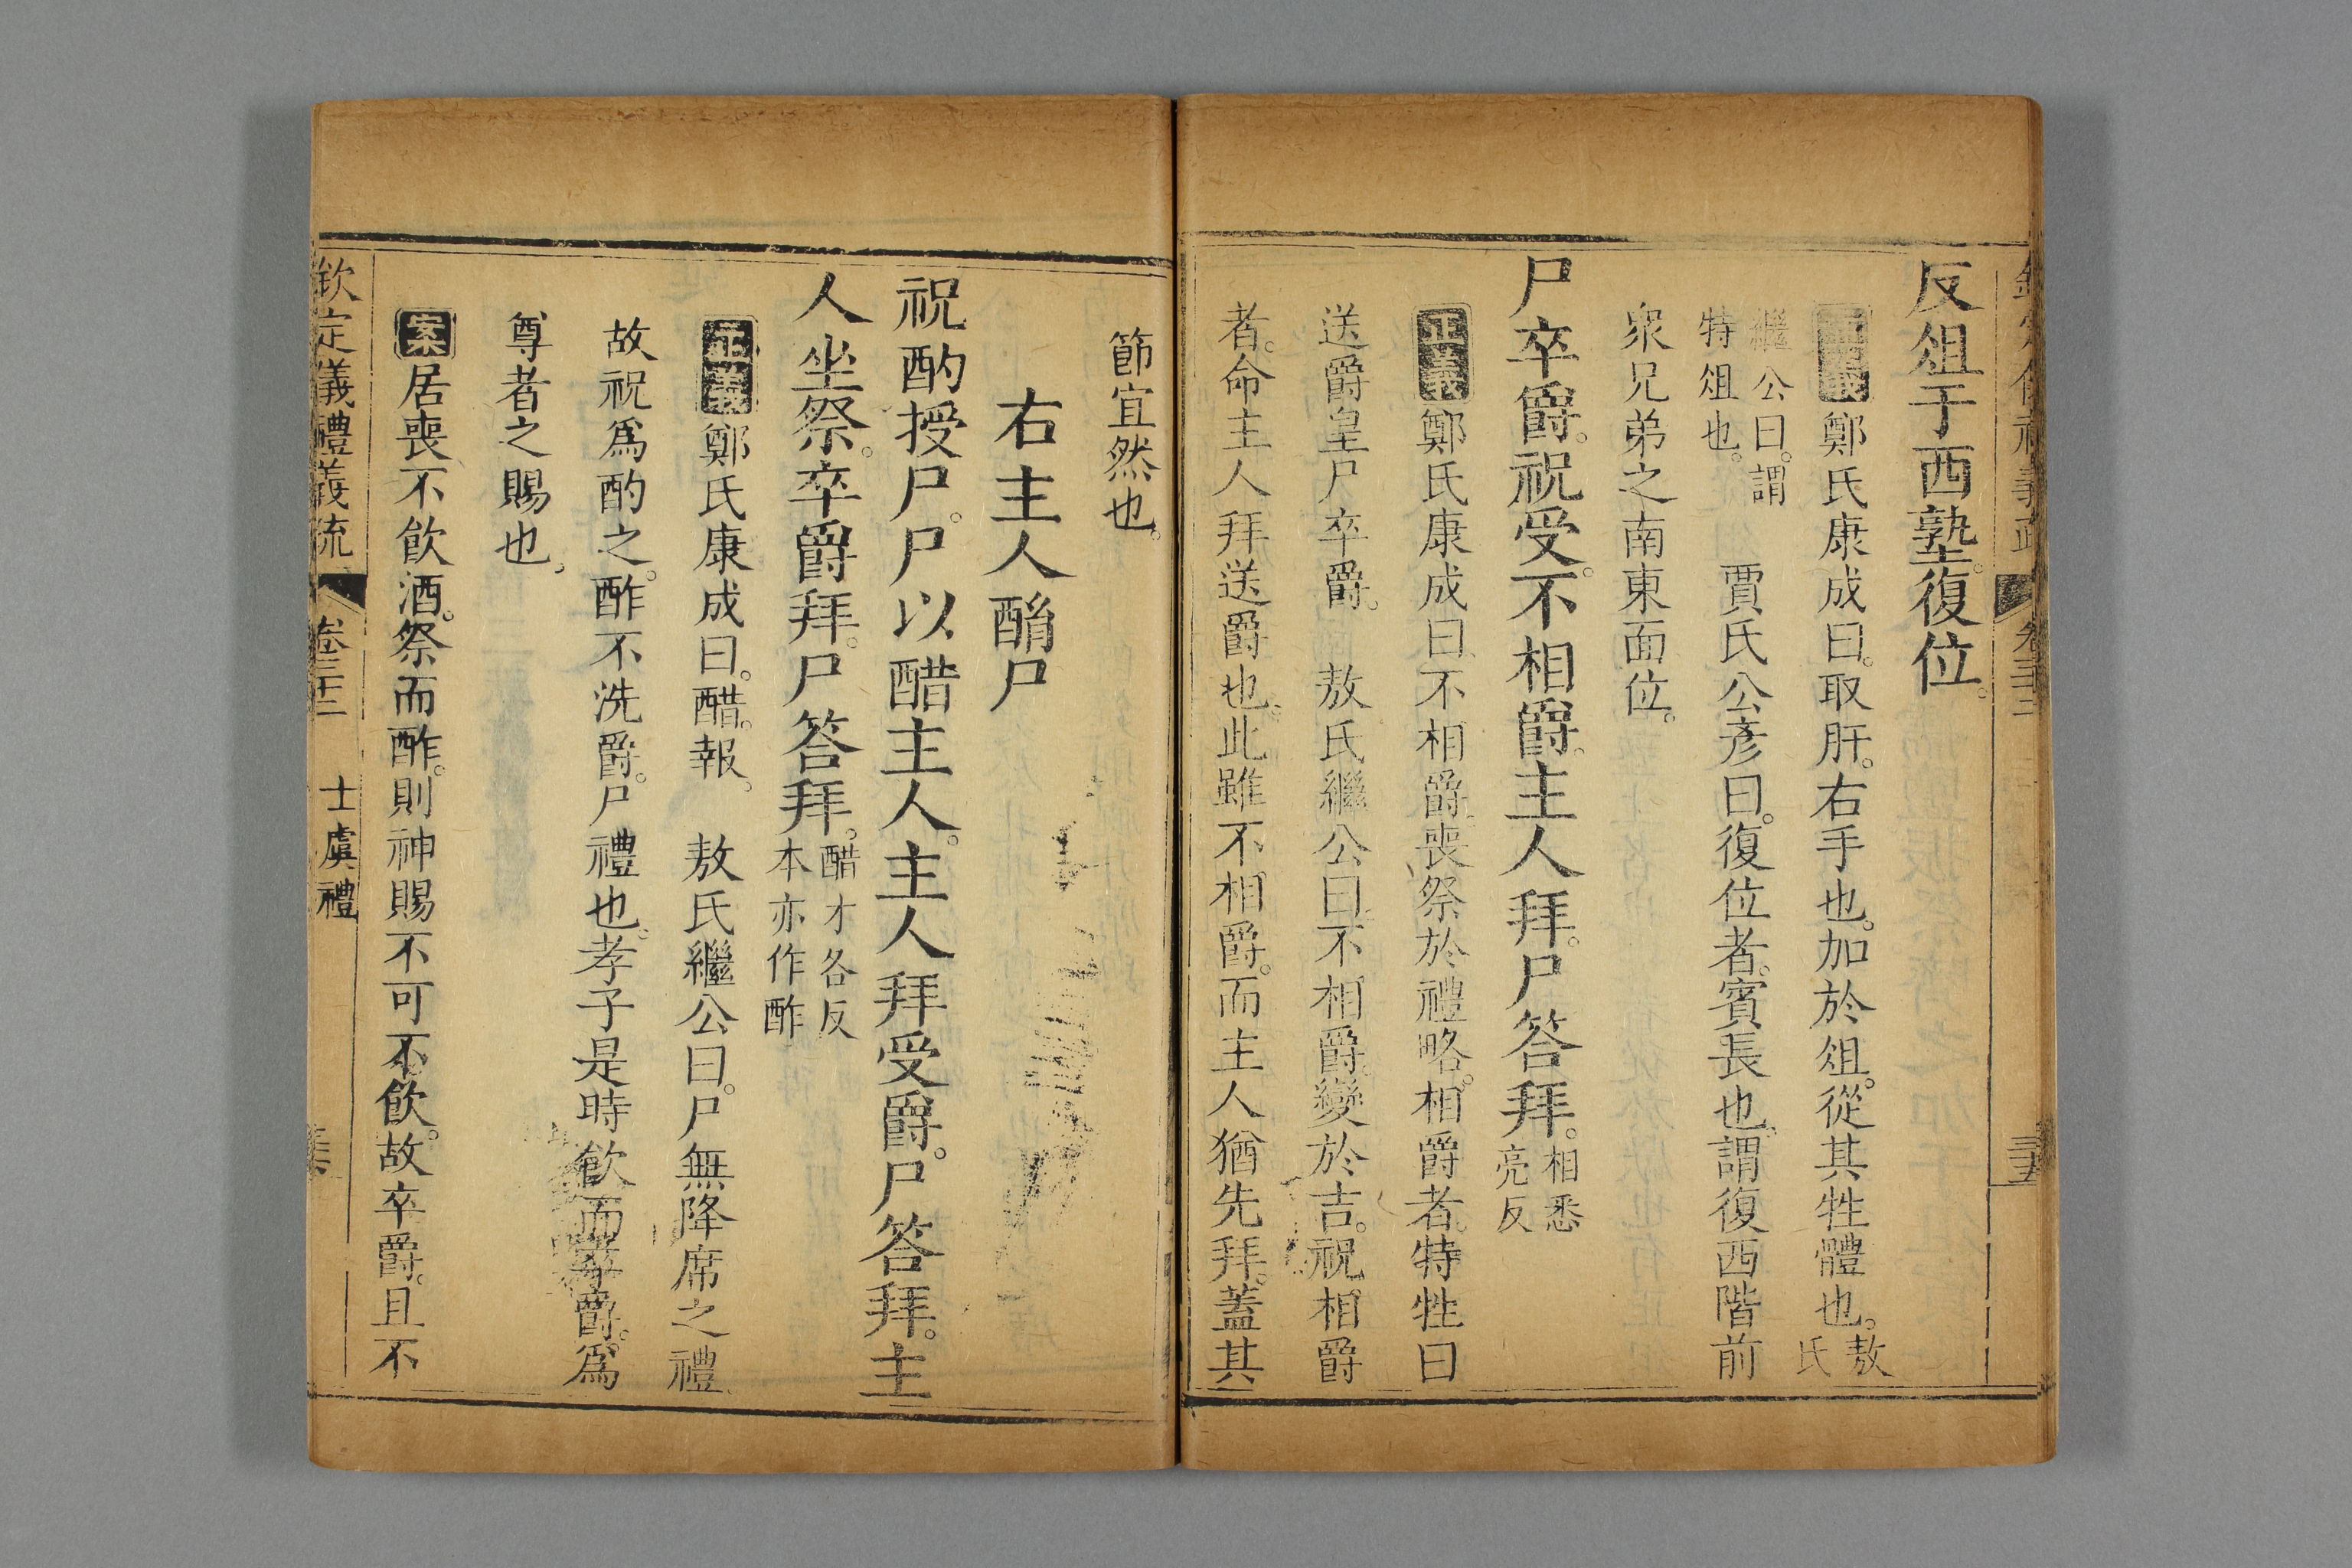 反俎于西塾。復位。
正義鄭氏康成曰。取肝。右手也。加於俎。從其牲體也。敖氏
繼公曰。謂特俎也。 賈氏公彦曰。復位者。賓長也。謂復西階前
衆兄弟之南東面位。
尸卒爵。祝受。不相爵。主人拜。尸答拜。相悉亮反
正義鄭氏康成曰。不相爵。喪祭於禮略。相爵者。特牲曰
送爵皇尸卒爵。 敖氏繼公曰不相爵。變於吉。祝相爵
者。命主人拜送爵也。此雖不相爵。而主人猶先拜。蓋其
節宜然也。
右主人酳尸
祝酌授尸。尸以醋主人。主人拜受爵。尸答拜。主
人坐祭。卒爵拜。尸答拜。醋才各反本亦作酢
正義鄭氏康成曰。醋。報。 敖氏繼公曰。尸無降席之禮。
故祝爲酌之。酢不洗爵。尸禮也。孝子是時飲而卒爵。爲
尊者之賜也。
案居喪不飲酒。祭而酢。則神賜不可不飲。故卒爵。且不
欽定儀禮義疏 卷三十三 士虞禮